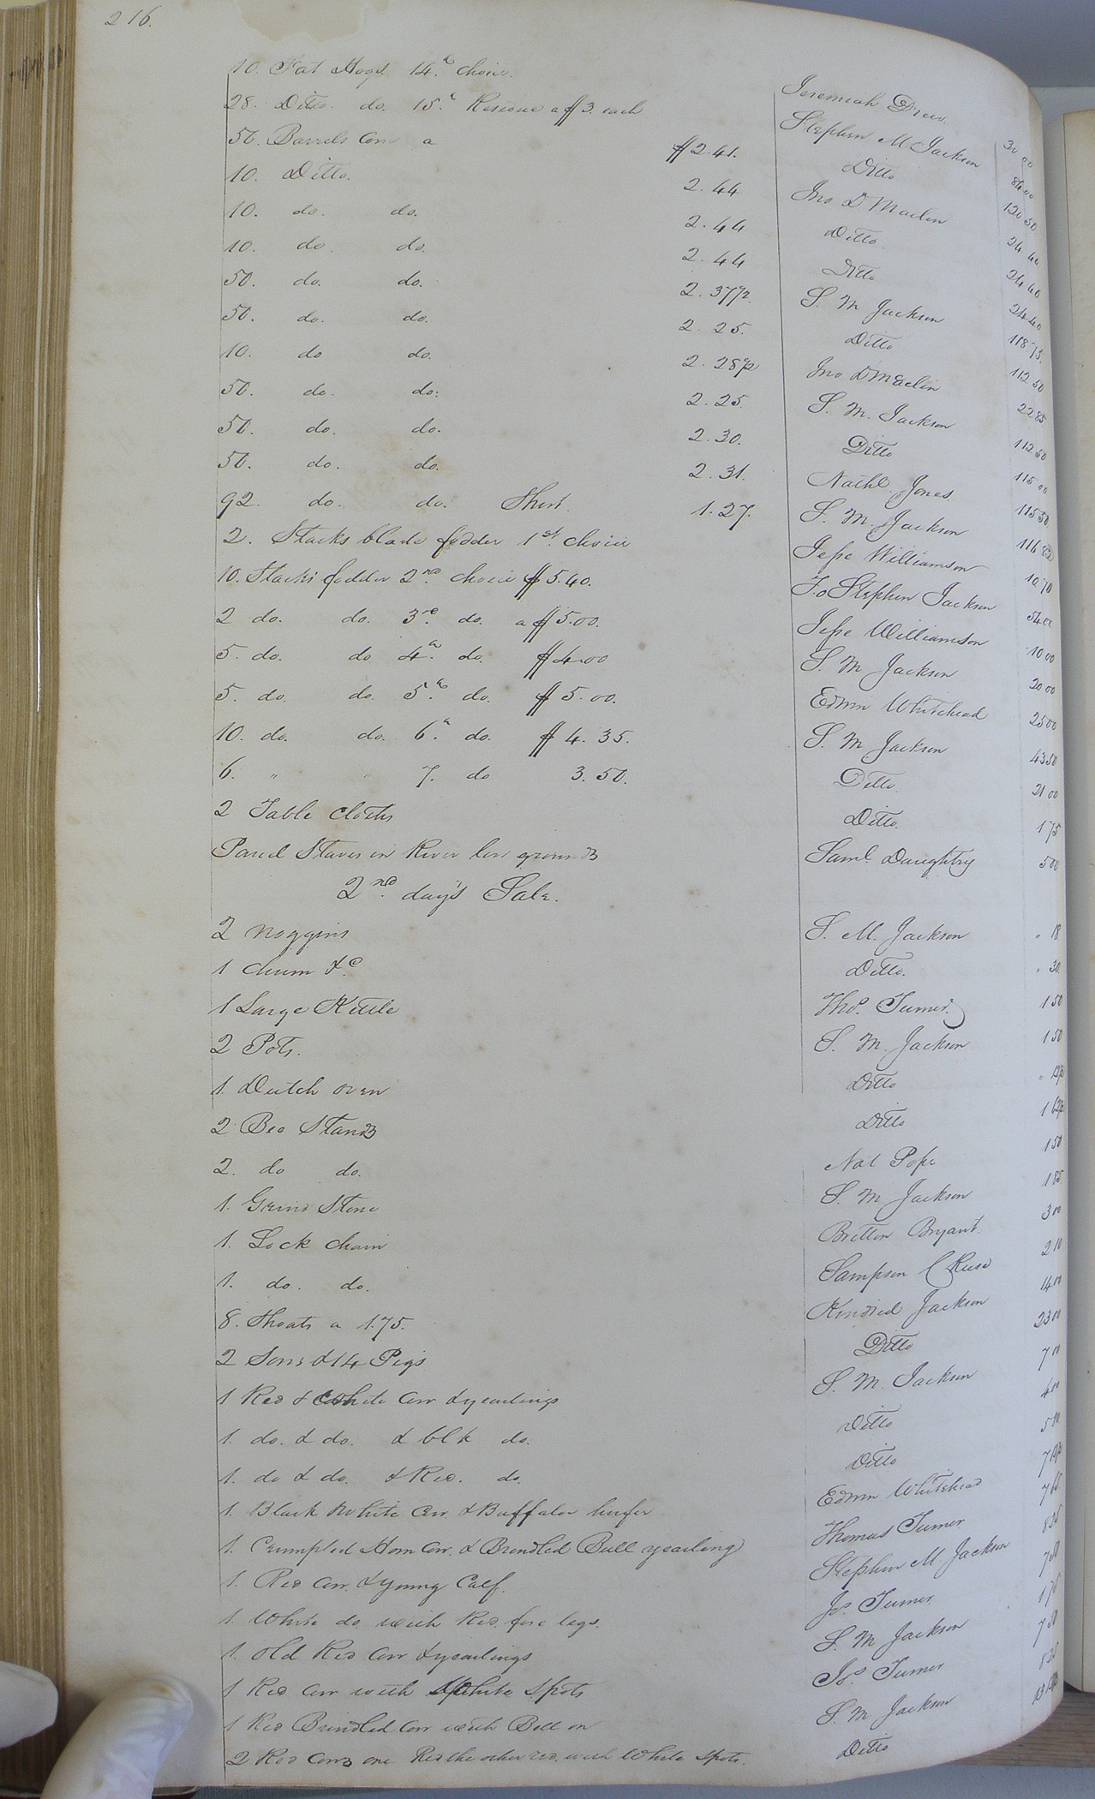 216.
10. Fat Hogs 14.th choice. Jeremiah Drew 30 00
28. Ditto. do. 15.th Residue a $3. each Stephen M Jackson 84 00
50. Barrels Corn a $2.41. Ditto 120 50
10. Ditto. 2.44 Jno D Maclin 24 40
10. do. do. 2.44 Ditto 24 40
10. do. do. 2.44 Ditto 24 40
50. do. do. 2.37½ S. M Jackson 118 75.
50. do. do. 2.25. Ditto 112 50
10. do do. 2.28½ Jno D Maclin 22 85
50. do. do. 2.25. S. M. Jackson 112 50
50. do. do. 2.30. Ditto 115 00
50. do. do. 2.31. Nathl. Jones 115 50
92. do. do. Short 1.27. S. M. Jackson 116 84
2. Stacks blade fodder 1st. choice Jesse Williamson 10 70
10. Stacks fodder 2nd. choice $5.40. To Stephen Jackson 54 00
2 do. do. 3rd. do. a $5.00. Jesse Williamson 10 00
5. do. do 4.th do. $4.00 S. M Jackson 20 00
5. do. do. 5.th do. $5.00. Edwin Whitehead 25 00
10. do. do. 6.th do. $4.35. S. M Jackson 43 50
6. " " 7. do 3.50. Ditto. 21 00
2 Table cloths Ditto. 1 75
Parcel Staves in River low grounds Saml. Daughtry 5 00
2nd. day's Sale.
2 Noggins S. M. Jackson " 18
1 churn &c Ditto. " 30
1 Large Kettle Thos. Turner. 1 50
2 Pots. S. M. Jackson 1 50
1. Dutch oven Ditto "
2 Bee Stands Ditto 1 62½
2. do do. Nat Pope 1 50
1. Grind Stone S. M Jackson 1 85
1. Lock chain Britton Bryant 3 00
1. do. do. Sampson C Reese 2 10
8. Shoats a 1.75. Kindred Jackson 14 00
2 Sows & 14 Pigs Ditto 23 00
1 Red & White Cow & yearlings S. M. Jackson 7 00
1. do. & do. & blk do. Ditto 4 00
1. do & do. & Red. do Ditto 5 00
1. Black White Cow & Buffaloe heifer Edwin Whitehead
1. Crumpled Horn Cow. & Brendled Bull yearling Thomas Turner
1. Red Cow. & young Calf. Stephen M Jackson
1. White do. with Red. fore legs. Js. Turner
1. Old Red Cow & yearlings S. M Jackson
1 Red Cow with White Spots Js. Turner
1 Red Brindled Cow with Bell on S. M Jackson
2 Red Cows one Red the other red. with White Spots. Ditto